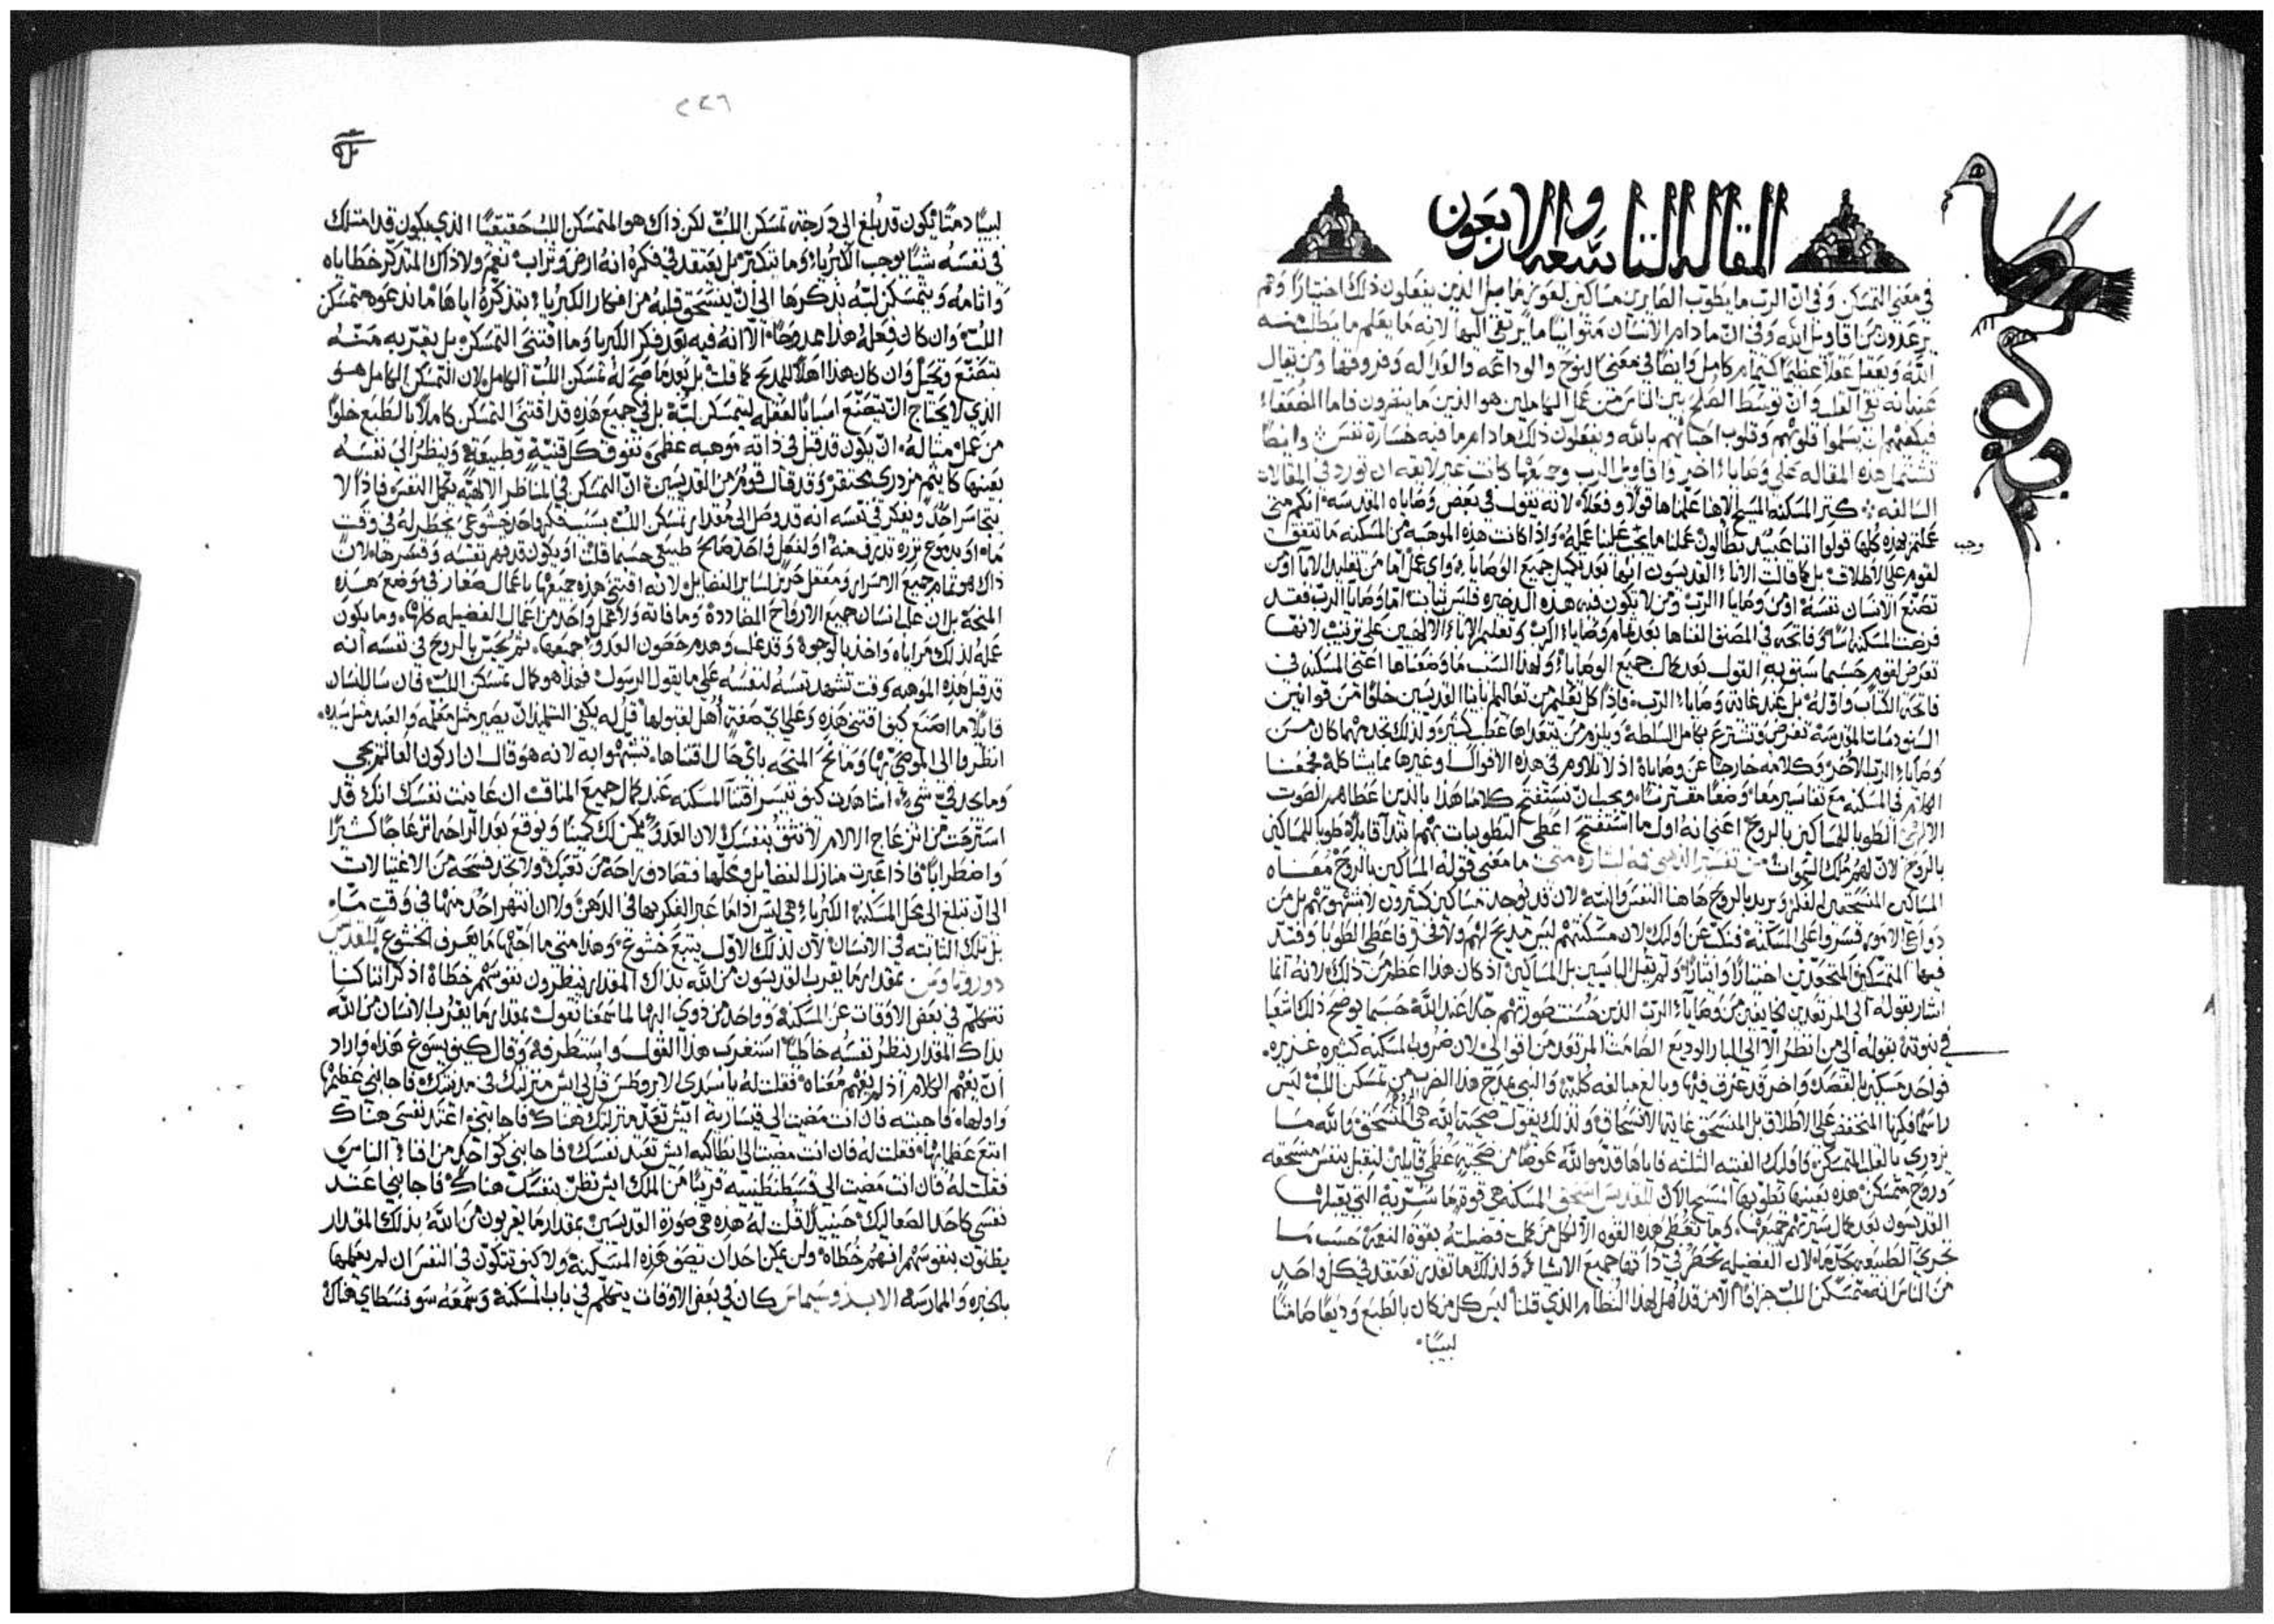 المقالة التاسعه والاربعون
في معني التمسكن وفي ان الرب ما يطوب الصايرين مساكين لعوز ما بل الذين يفعلون ذلك اختيارًا وهم
يرعدون من اقاويل الله وفي ان ما دام الانسان متوانيًا ما يرتقي اليها لانه ما يعلم ما يطلب منه
الله ويعقل عقلاً عظيمًا كتمام كامل وايضًا في معني النوح والوداعه والعداله وفروقها ومن يقال
عنه انه نقي القلب وان توسط الصلح بين الناس من عمل الكاملين هو الذين ما ينفرون فاما الضعفاء
فيكفيهم ان يسلموا قلوبهم وقلوب احبائهم بالله ويفعلون ذلك ما دام ما فيه خسارة نفس وايضًا
تشتمل هذه المقاله علي وصايا اخر واقاويل الرب وجميعها كانت غير لايقه ان تورد في المقالات
السالفه كنز المسكنه المسيح الاهنا علمناها قولاً وفعلاً لانه يقول في بعض وصاياه المقدسه انكم متي
عملتم بهذه كلها قولوا اننا عبيد بطالون عملنا ما يجب علينا عمله واذا كانت هذه الموهبه من المسكنه ما تتفق
وجب
لقوم علي الاطلاق بل كما قالت الاباء القديسون انها بعد تكميل جميع الوصايا
تصنع الانسان نفسه او من وصايا الرب ومن لا يكون فيه هذه الذخيره فليس ثابت اما وصايا الرب فقد
فرضت المسكنه
تعرض لقوم حسبما سبق به القول بعد كمال جميع الوصايا ولهذا السبب ما وضعناها اعني المسكنه في
فاتحة الكتاب واوله بل عند غاية وصايا الرب فاذًا كل تعليم من تعاليم ابائنا القديسين خلوًا من قوانين
السنودسات المقدسه تفرض وتشترع بكامل السلطة ويلزم من يتعداها عطب كثير ولذلك تجد مهما كان من
وصايا الرب الاخر وكلامه خارجًا عن وصاياه اذ لا تلاوم في هذه الاقوال وغيرها مما يشاكله فجمعنا
الكلام في المسكنه مع تفاسير معًا وضعًا مقترنًا ويجب ان نستفتح كلامنا هذا بالذين اعطاهم الصوت
الالهي الطوبا للمساكين بالروح اعني انه اول ما استفتح اعطي التطويبات منهم ابتدأ قايلاً طوبا للمساكين
بالروح لان لهم ملك السموات من تفسير الذهبي فمه لبشارة متي ما معني قوله المساكين بالروح معناه
المساكين المنسحقين الفكر ويريد بالروح هاهنا النفس والنيه لان قد يوجد مساكين كثيرون لا بشهوتهم بل من
دواعي الامور قسروا علي المسكنه فنكب عن اوليك لان مسكنتهم ليس مديح لهم ولا فخر فاعطي الطوبا وقتد
فيها المتمسكنين المنجذبين اختيارًا وايثارًا ولم يقل البايسين بل المساكين اذ كان هذا اعظم من ذلك لانه انما
اشار بقوله الي المرتعدين الخايفين من وصايا الرب الذين حسنت صورتهم جدًا عند الله حسبما يوضح ذلك اشعيا
في نبوته بقوله الي من انظر الا الي البار الوديع الصامت المرتعد من اقوالي لان ضروب المسكنه كثيره غزيره
فواحد مسكين بالقصد واخر قد غرق فيها وبالغ مبالغه كليه والنبي يمدح هذا الضرب من تمسكن اللب ليس
راسمًا فكرها المنخفض علي الاطلاق بل المنسحق غاية الانسحاق ولذلك يقول ضحية لله هي المنسحق والله ما
يزدري بالقلب المتمسكن فاوليك الفتيه الثلثه فاياها قدموا لله عوضًا من ضحيه عظمي قايلين لنقبل بنفس منسحقه
وروح متمسكن هذه بعينها تطوبها المسيح الان القديس اسحق المسكنه هي قوة ما سرية التي يقبلها
القديسون بعد كمال سيرتهم جميعها وما تعطي هذه القوه الا لكل من كملت فضيلته بقوة النعمة حسب ما
تحوي الطبيعه بحدها لان الفضيله تحصر في ذاتها جميع الاشياء ولذلك ما تقدر تعتقد في كل واحد
من الناس انه متمسكن اللب جزافًا الا من قد اهل لهذا النظام الذي قلنا ليس كل من كان بالطبع وديعًا صامتًا
لبيبًا
٢٤٦
لبيبًا دمثًا يكون قد بلغ الي درجة تمسكن اللب لكن ذاك هو المتمسكن اللب حقيقيًا الذي يكون قد امتلك
في نفسه شيًا يوجب الكبرياء وما يتكبر بل يعتقد في فكره انه ارض وتراب نعم ولا ذاك المتذكر خطاياه
واثامه ويتمسكن لبه بذكرها الي ان ينسحق قلبه من افكار الكبريا بتذكره اياها ما ندعوه متمسكن
اللب وان كان فعله هذا ممدوحًا الا انه فيه بعد فكر الكبريا وما اقتني التمسكن بل يقربه منه
بتصنع وتحيل وان كان هذا اهلاً للمديح كما قلت بل بعد ما صح له تمسكن اللب الكامل لان التمسكن الكامل هو
الذي لا يحتاج ان يتصنع اسبابًا لعقله ليتمسكن لبه بل في جميع هذه قد اقتني التمسكن كاملاً بالطبع خلوًا
من عمل مثاله ان يكون قد قبل في ذاته موهبه عظمي تفوق كل قنية وطبيعة وينظر الي نفسه
بعينها كاثيم مزدري محتقر وقد قال قوم من القديسين ان التمسكن في المناظر الالهيه يكمل النفس فاذًا لا
يتجاسر احد ويفكر في نفسه انه قد وصل الي مقدار تمسكن اللب بسبب فكر واحد خشوعي يخطر له في وقت
ما او بدموع نزره تذرف منه او لفعل واحد صالح طبيعي حسبما قلت او يكون قد قهر نفسه وقسرها لان
ذاك هو تمام جميع الاسرار ومعقل حريز لساير الفضايل لانه اقتني هذه جميعها باعمال صغار في وضع هذه
المنحة بل ان غلب انسان جميع الارواح المضاددة وما فاته ولا عمل واحد من اعمال الفضيله كلها وما يكون
عمله لذلك مراياه واخذ بالوجوه وقد غلب وهدم حصون العدو جميعها ثم يحس بالروح في نفسه انه
قد قبل هذه الموهبه وقت تشهد نفسه لنفسه علي ما يقول الرسول فهذا هو كمال تمسكن اللب فان سال انسان
قايلاً ما اصنع كيف اقتني هذه وعلي اي صفة اُهل لقبولها قل له يكفي التلميذ ان يصير مثل معلمه والعبد مثل سيده
انظروا الي الموصي بها ومانح المنحه باي حال اقتناها تشبهوا به لانه هو قال ان اركون العالم يجي
وما يجد في شي اشاهدت كيف نيسر اقتنا المسكنه عند كمال جميع المناقب ان عاينت نفسك انك قد
استرحت من انزعاج الالام لا تثق بنفسك لان العدو يمكن لك كمينًا وتوقع بعد الراحه انزعاجًا كثيرًا
واضطرابًا فاذا عبرت منازل الفضايل وكلها فتصادف راحة من تعبك ولا تجد فسحه من الاغتيالات
الي ان تبلغ الي محل المسكنه الكبرياء هي ليس اذا ما عبر الفكر بها في الذهن ولا ان انقهر احد منها في وقت ما
بل تلك الثابته في الانسان لان لذلك الاول يتبع خشوع وهذا متي ما احبها ما يعرف الخشوع للقديس
دوروثاوس بمقدار ما يقرب القديسون من الله بذاك المقدار ينظرون نفوسهم خطاة اذكر اننا كنا
نتكلم في بعض الاوقات عن المسكنة وواحد من ذوي البها لما سمعنا نقول بمقدار ما يقترب الانسان من الله
بذاك المقدار ينظر نفسه خاطيًا استغرب هذا القول واستطرفه وقال كيف يسوغ هذا واراد
ان يفهم الكلام اذ لم يفهم معناه فقلت له يا سيدي الاروطس قل لي ايش منزلتك في مدينتك فاجابني عظيمها
واولها فاجبته فان انت مضيت الي قيسارية ايش تعد منزلتك هناك فاجابني اعتد نفسي هناك
اتبع عظمايها فقلت له فان انت مضيت الي انطاكيه ايش تعتد نفسك فاجابني كواحد من افناء الناس
فقلت له فان انت مضيت الي قسطنطنيه قريبًا من الملك ايش تظن بنفسك هناك فاجابني اعتد
نفسي كاحد الصعاليك حينيذ قلت له هذه هي صورة القديسين بمقدار ما يقربون من الله بذلك المقدار
يظنون بنفوسهم انهم خطاة ولن يمكن احد ان يصف هذه المسكنه ولا كيف تتكون في النفس ان لم يعلمها
بالخبره والممارسه الاب زوسيماس كان في بعض الاوقات يتكلم في باب المسكنة وسمعه سوفسطاي هناك